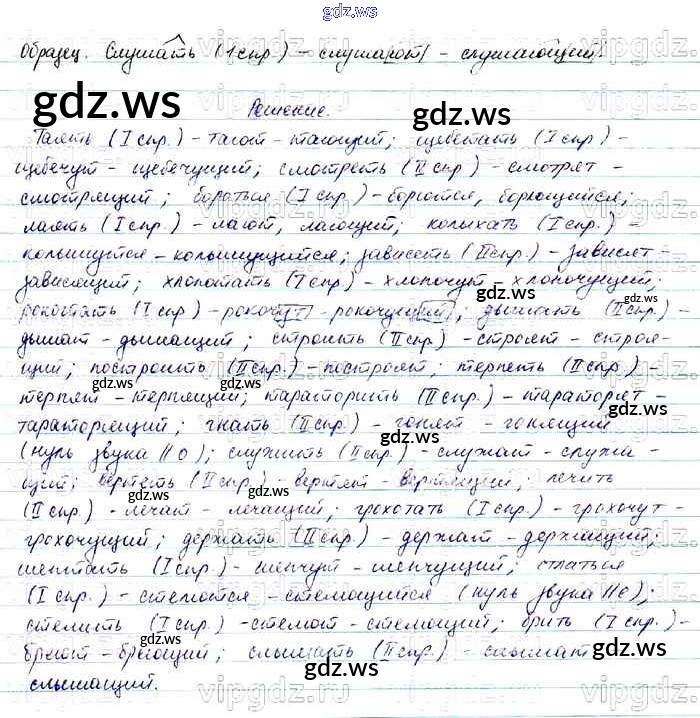 gdz.ws
Образец. Слушать (1 спр.) – слушают – слушающий.
gdz.ws
Решение.
Таять (I спр.) – тают – тающий; щебетать (I спр.) –
щебечут – щебечущий; смотреть (II спр.) – смотрят –
смотрящий; бороться (I спр.) – борются, борющийся;
лаять (I спр.) – лают, лающий; колыхать (I спр.) –
колышутся – колышущийся; зависеть (II спр.) – зависят
зависящий; хлопотать (I спр) – хлопочут – хлопочущий;
рокотать (I спр.) – рокочут – рокочущий; дышать (II спр.) –
gdz.ws
дышат – дышащий; строить (II спр.) – строят – строя-
щий; построить (II спр.) – построят; терпеть (II спр) –
gdz.ws
терпят – терпящий; тараторить (II спр.) – тараторят –
gdz.ws
тараторящий; гнать (II спр.) – гонят – гонящий
gdz.ws
(нуль звука // о); служить (II спр.) – служат – служа-
щий; вертеть (I спр.) – вертят – вертящий; лечить
gdz.ws
(II спр.) – лечат – лечащий; грохотать (I спр.) – грохочут –
грохочущий; держать (II спр.) – держат – держащий;
gdz.ws
шептать (I спр.) – шепчут – шепчущий; стлаться
(I спр.) – стелются – стелющийся (нуль звука // е);
gdz.ws
стелить (I спр.) – стелют – стелющий; брить (I спр.) –
бреют – бреющий; слышать (II спр.) – слышат
gdz.ws
слышащий.
gdz.ws
vipgdz.ws